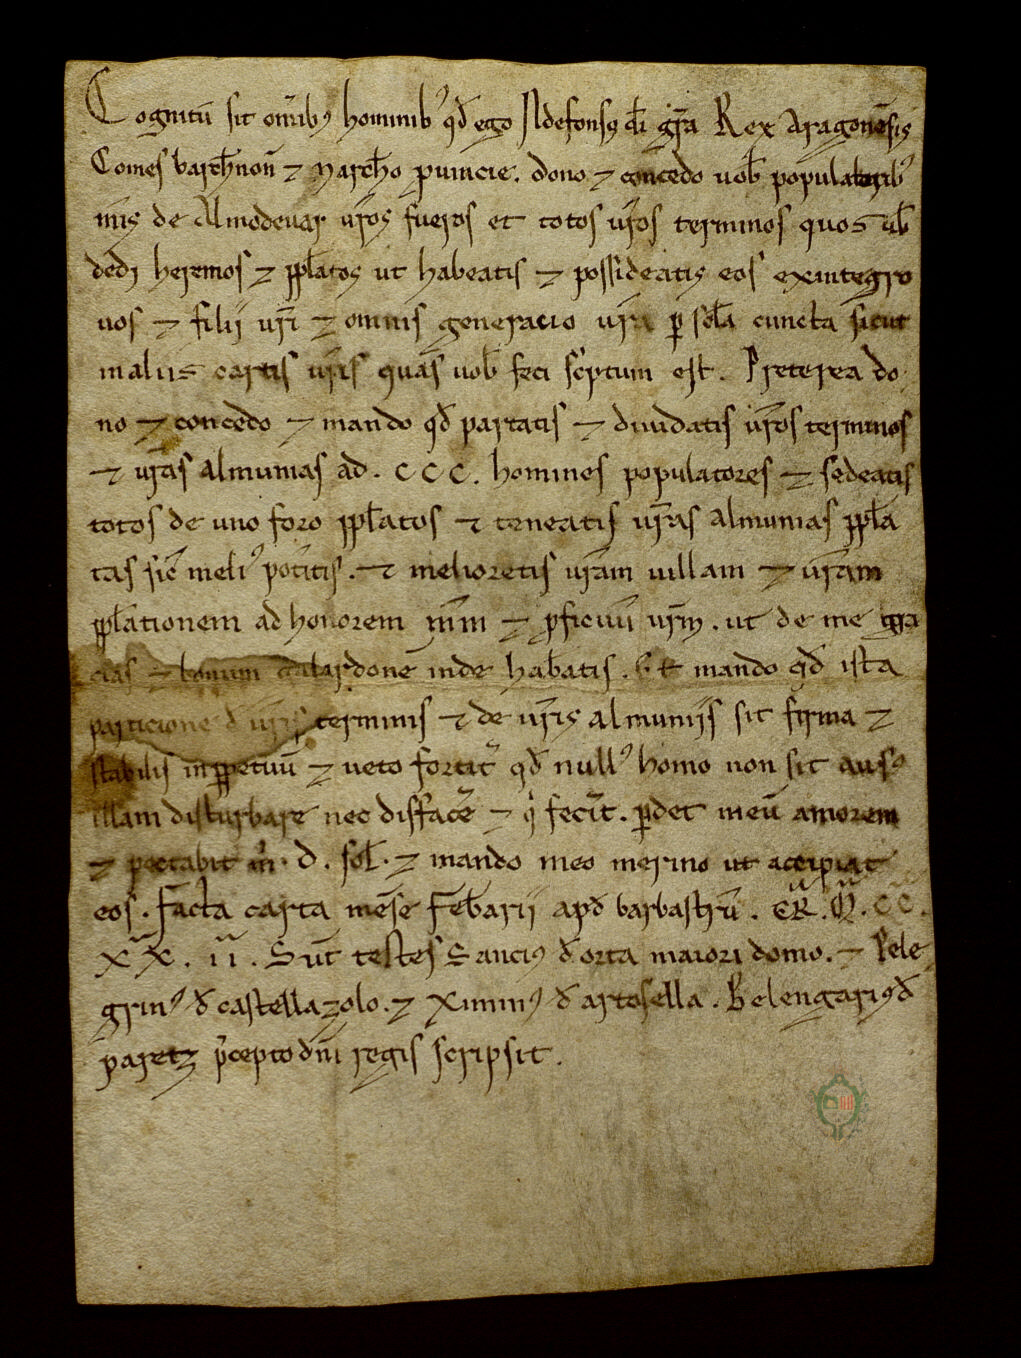 Cognitū sit om̄ibꝰ hominibꝰ qđ ego Ildefonsꝰ di gr̄a Rex Aragonēsis
Comes barch̄non̄ ⁊ march̄o ꝓuincie. dono ⁊ concedo uob̄ populatoribꝰ
mīs de Almodeuar ur̄os fueros et totos ur̄os terminos quos uob̄
dedi heremos ⁊ ppl̄atos ut habeatis ⁊ possideatis eos exintegro
uos ⁊ filii ur̄i ⁊ omnis generacio ur̄a ꝑ sc̄la cuncta sicut
inaliis cartis ur̄is quas uob̄ feci sc̄ptum est. Preterea do
no ⁊ concedo ⁊ mando qđ partatis ⁊ diuidatis ur̄os terminos
⁊ ur̄as almunias ad . CCC. homines populatores ⁊ sedeatis
totos de uno foro ppl̄atos ⁊ teneatis ur̄as almunias ppl̄a
tas sic̄ meliꝰ pot̄itis. ⁊ melioretis ur̄am uillam ⁊ ur̄am
ppl̄ationem ad honorem m̄m ⁊ ꝓficuū ur̄m. ut de me gra
cias ⁊ bonum gualardonē inde hab̄atis. Et mando qđ ista
particione đ ur̄is terminis ⁊ de ur̄is almuniis sit firma ⁊
stabilis inꝑpetuū ⁊ ueto fortit̄ qđ nullꝰ homo non sit ausꝰ
illam disturbare nec disfac̄e ⁊ qͥ fec̄it. ꝑdet meū amorem
⁊ pectabit m̄. d. sol̄. ⁊ mando meo merino ut accipiat
eos. Fac̄ta carta mēse Feb̄arii apđ barbastrū. ER̄.M̄.CC.
XX. ii. Sūt testes Sanciꝰ đ orta maiori domo. ⁊ Pele
grinꝰ đ castellazolo. ⁊ Ximinꝰ đ artosella. Belengariꝰ đ
paretz p̄cepto dn̄i regis scripsit.